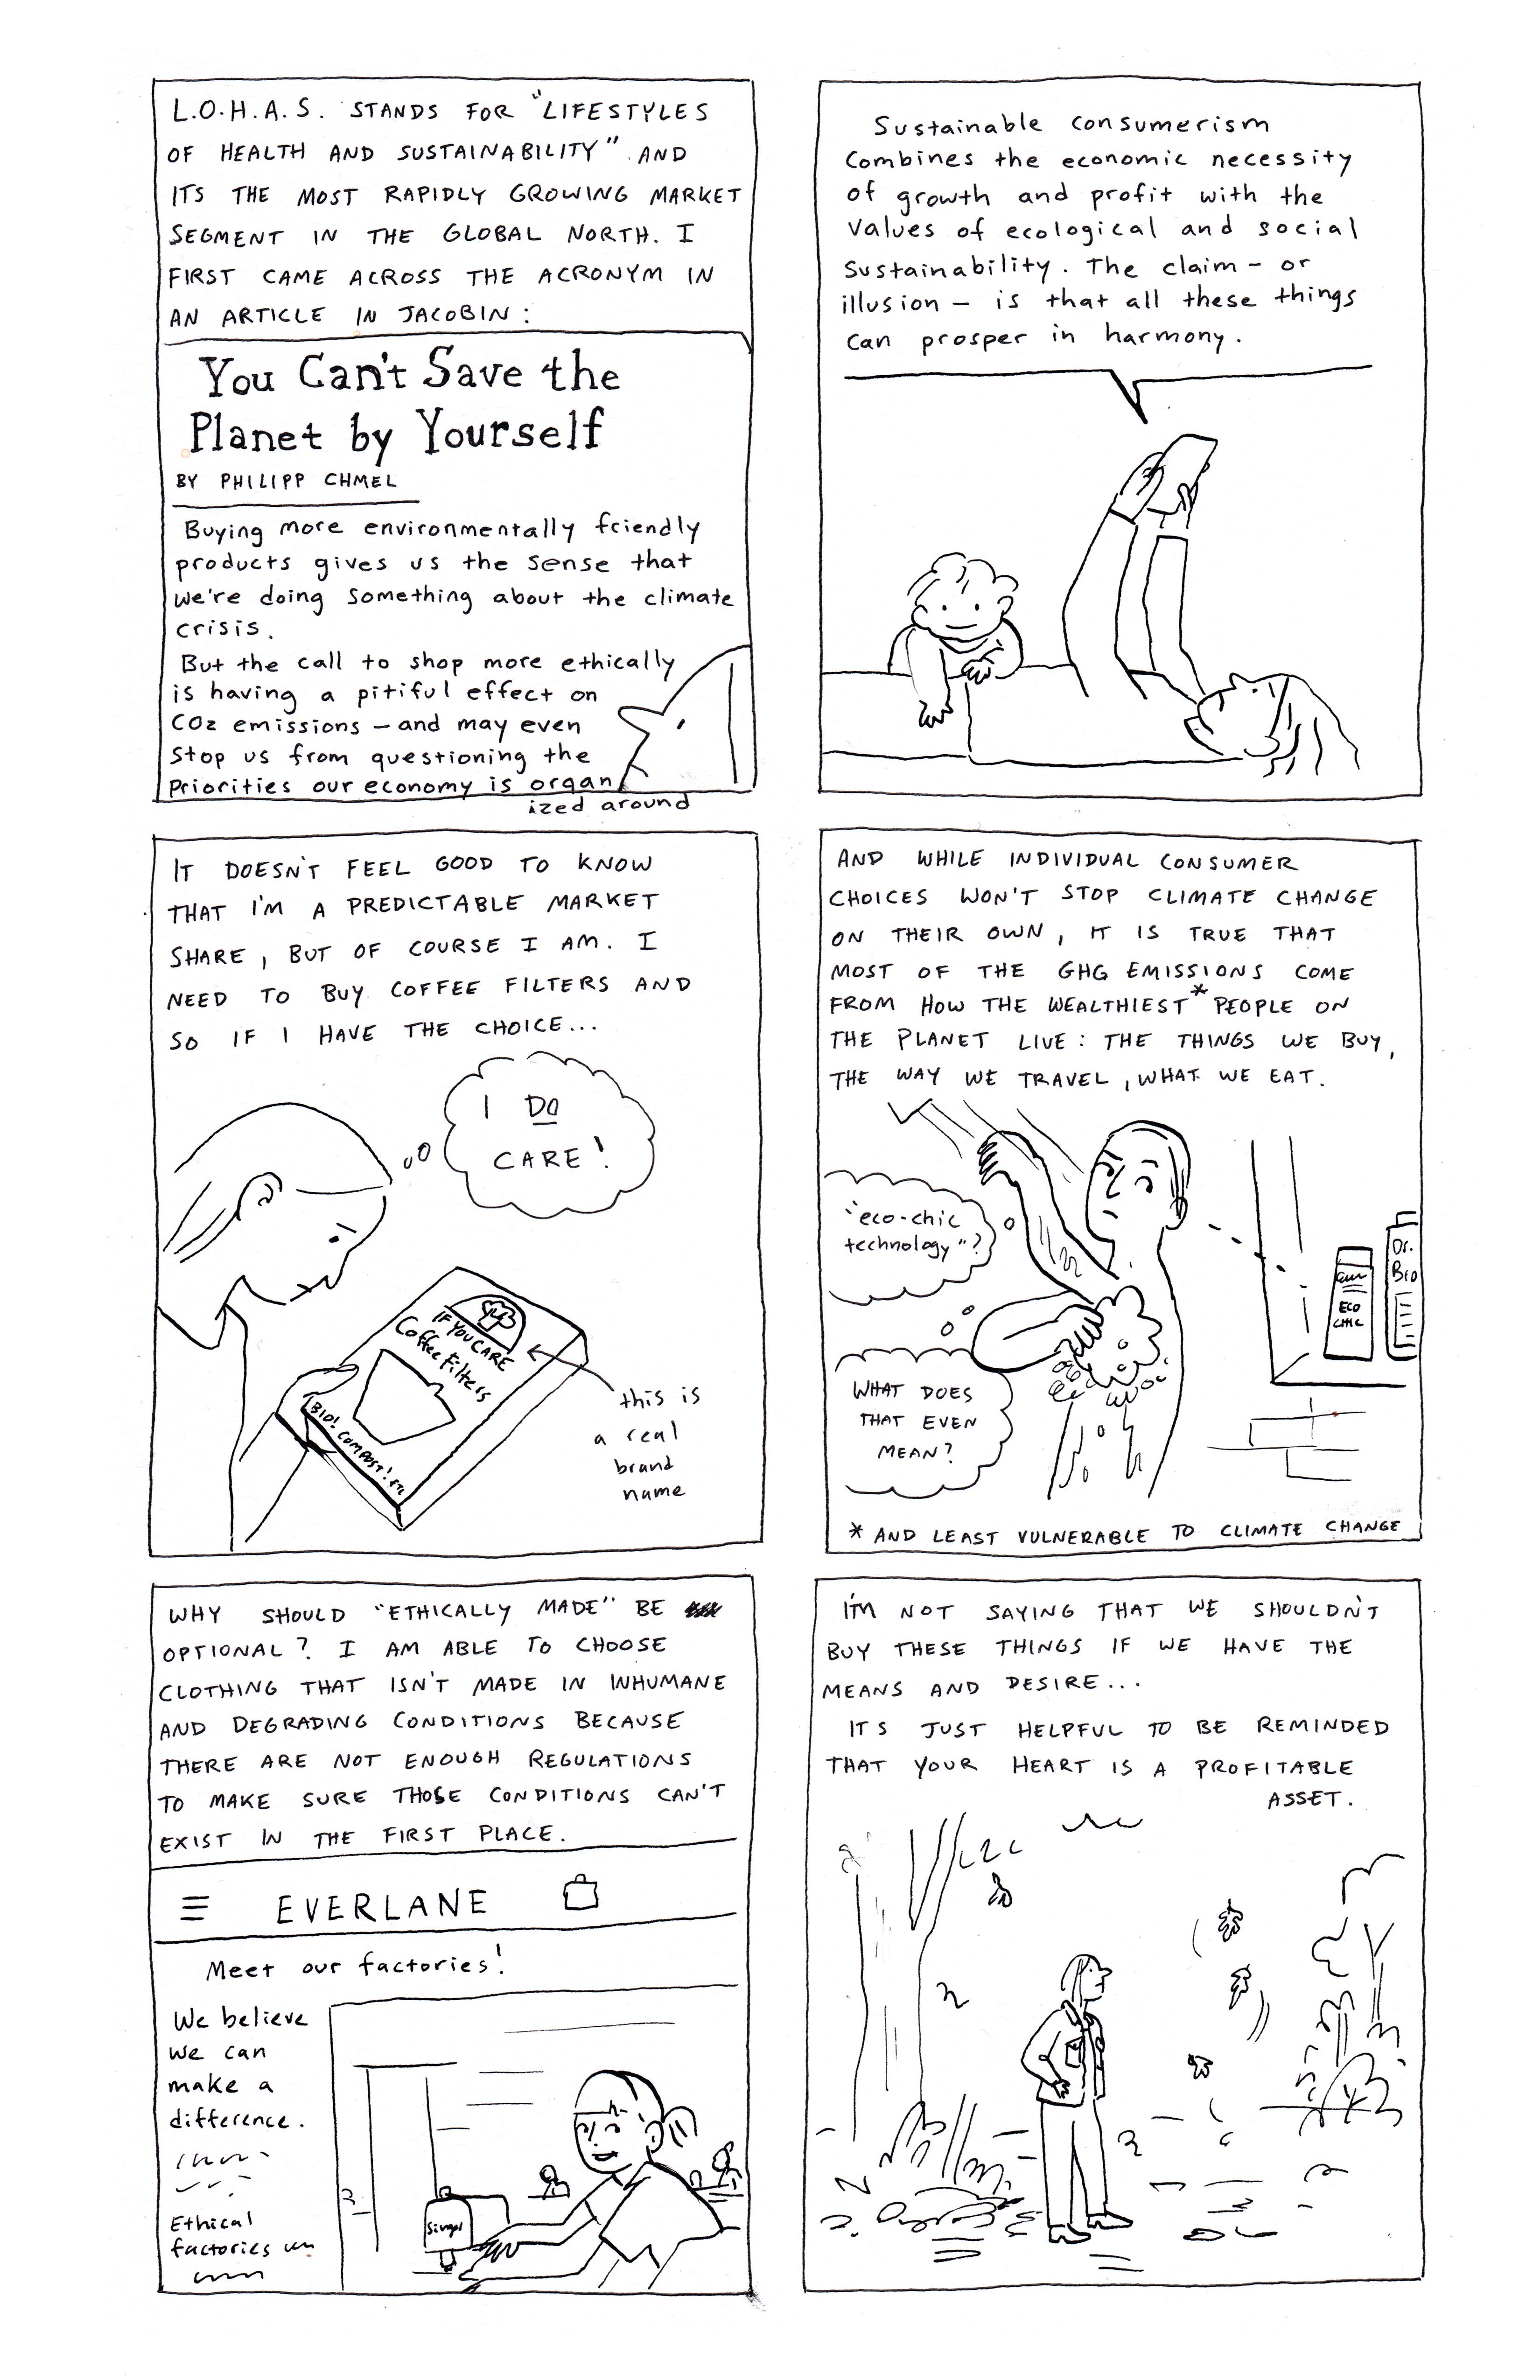 L.O.H.A.S. STANDS FOR "LIFESTYLES
OF HEALTH AND SUSTAINABILITY" AND
ITS THE MOST RAPIDLY GROWING MARKET
SEGMENT IN THE GLOBAL NORTH. I
FIRST CAME ACROSS THE ACRONYM IN
AN ARTICLE IN JACOBIN:
You Can't Save the
Planet by Yourself
BY PHILIPP CHMEL
Buying more environmentally friendly
products gives us the sense that
we're doing something about the climate
crisis.
But the call to shop more ethically
is having a pitiful effect on
CO2 emissions – and may even
stop us from questioning the
priorities our economy is organ
ized around
Sustainable consumerism
combines the economic necessity
of growth and profit with the
values of ecological and social
sustainability. The claim – or
illusion – is that all these things
can prosper in harmony.
IT DOESN'T FEEL GOOD TO KNOW
THAT I'M A PREDICTABLE MARKET
SHARE, BUT OF COURSE I AM. I
NEED TO BUY COFFEE FILTERS AND
SO IF I HAVE THE CHOICE...
I DO
CARE!
IF YOU CARE
Coffee Filters
BIO! COMPOST!
this is
a real
brand
name
AND WHILE INDIVIDUAL CONSUMER
CHOICES WON'T STOP CLIMATE CHANGE
ON THEIR OWN, IT IS TRUE THAT
MOST OF THE GHG EMISSIONS COME
FROM HOW THE WEALTHIEST* PEOPLE ON
THE PLANET LIVE: THE THINGS WE BUY,
THE WAY WE TRAVEL, WHAT WE EAT.
"eco-chic
technology"?
WHAT DOES
THAT EVEN
MEAN?
ECO
CHIC
Dr.
Bio
* AND LEAST VULNERABLE TO CLIMATE CHANGE
WHY SHOULD "ETHICALLY MADE" BE
OPTIONAL? I AM ABLE TO CHOOSE
CLOTHING THAT ISN'T MADE IN INHUMANE
AND DEGRADING CONDITIONS BECAUSE
THERE ARE NOT ENOUGH REGULATIONS
TO MAKE SURE THOSE CONDITIONS CAN'T
EXIST IN THE FIRST PLACE.
EVERLANE
Meet our factories!
We believe
we can
make a
difference.
Ethical
factories
Singer
I'M NOT SAYING THAT WE SHOULDN'T
BUY THESE THINGS IF WE HAVE THE
MEANS AND DESIRE...
ITS JUST HELPFUL TO BE REMINDED
THAT YOUR HEART IS A PROFITABLE
ASSET.